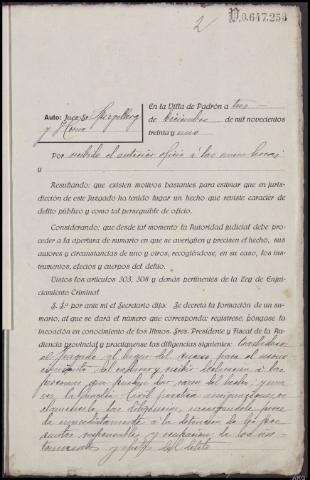 2
0.647.253
Auto: Juez, Sr. Spiegelberg
y Horno
En la Villa de Padrón a tres
de Diciembre de mil novecientos
treinta y uno
Por recibido el anterior oficio á las nueve horas
y
Resultando: que existen motivos bastantes para estimar que en juris-
dicción de este Juzgado ha tenido lugar un hecho que reviste caracter de
delito público y como tal perseguible de oficio.
Considerando: que desde tal momento la Autoridad judicial debe pro-
ceder a la apertura de sumario en que se averigüen y precisen el hecho, sus
autores y circunstancias de uno y otros, recogiéndose, en su caso, los ins-
trumentos, efectos y cuerpos del delito.
Vistos los artículos 303, 308 y demás pertinentes de la Ley de Enjui-
ciamiento Criminal
S. S.ª por ante mí el Secretario dijo: Se decreta la formación de un su-
mario, al que se dará el número que corresponda; regístrese, póngase la
incoación en conocimiento de los Iltmos. Sres. Presidente y Fiscal de la Au-
diencia provincial y practíquense las diligencias siguientes: Trasládese
el Juzgado al lugar del suceso para el recono-
cimiento del cadáver y recibir declaración á las
personas que puedan dar razon del hecho; y una
vez la Guardia Civil practica
las diligencias,
inmediatamente á la detencion de los pre-
suntos responsables y ocupacion de los ins-
trumentos y efectos del delito